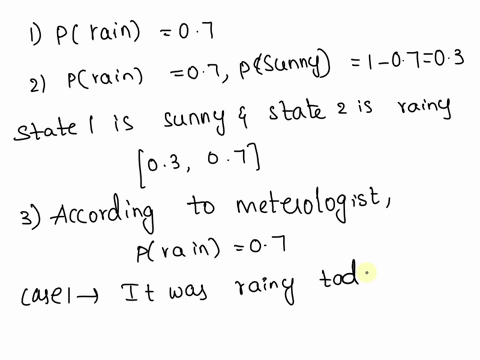 1) P(rain) = 0.7
2) P(rain) = 0.7, P(Sunny) = 1-0.7=0.3
State 1 is sunny & state 2 is rainy
[0.3, 0.7]
3) According to meterologist,
P(rain) = 0.7
Case1 → It was rainy tod